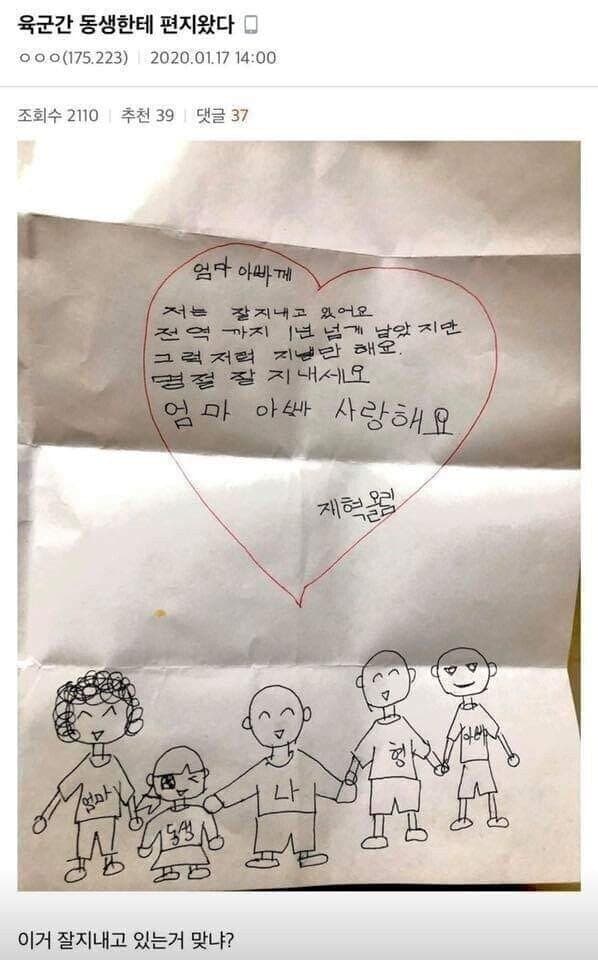 육군간 동생한테 편지왔다
ㅇㅇㅇ(175.223) 2020.01.17 14:00
조회수 2110 추천 39 댓글 37
엄마 아빠께
저는 잘지내고 있어요
전역 까지 1년 넘게 남았지만
그럭저럭 지낼만 해요.
명절 잘 지내세요
엄마 아빠 사랑해요
재혁올림
엄마
동생
나
형
아빠
이거 잘지내고 있는거 맞냐?